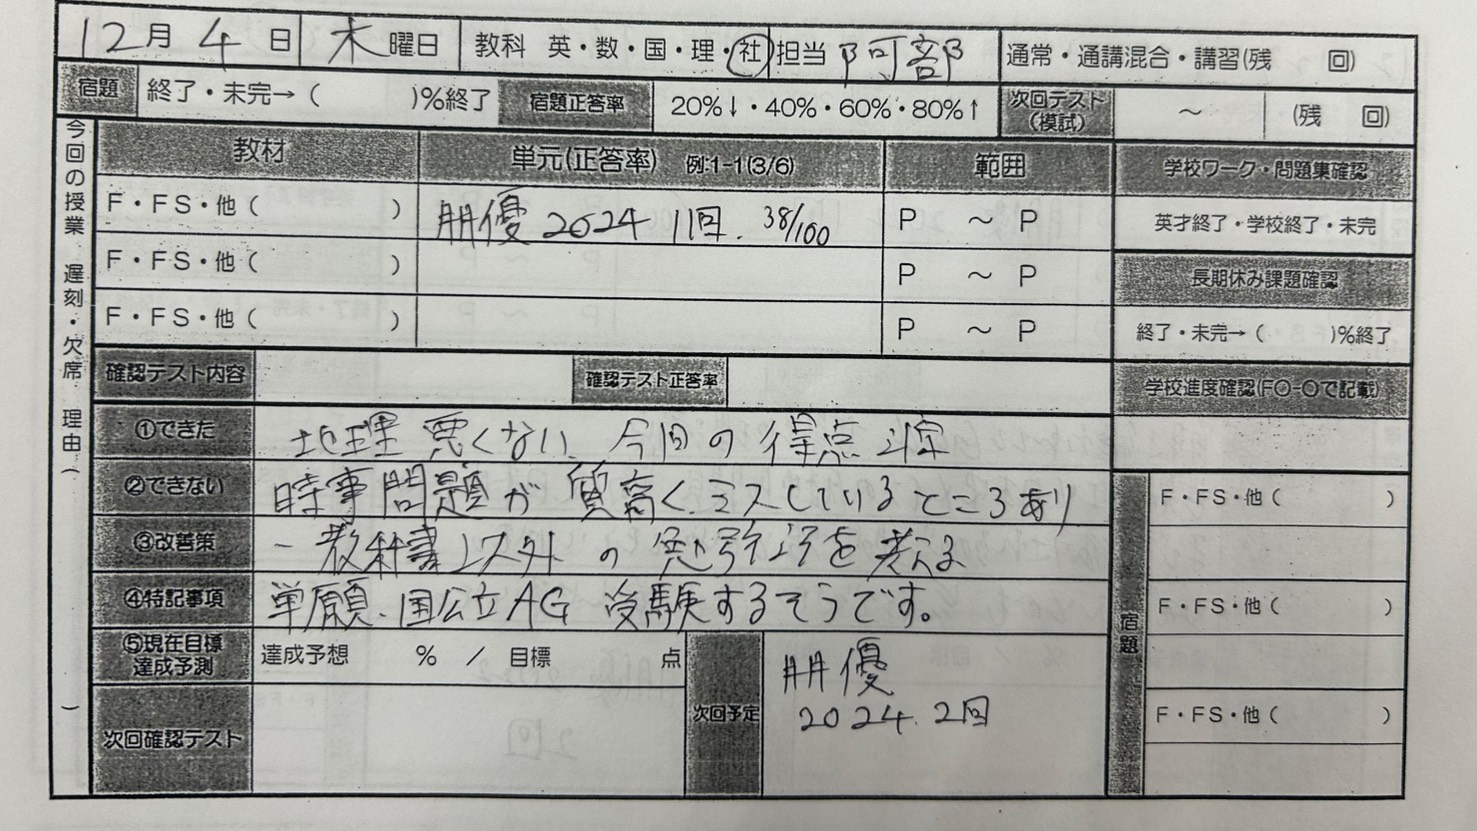 12月 4日 木曜日 教科 英・数・国・理・社 担当 阿部 通常・通講混合・講習(残 回)
宿題 終了・未完→( )%終了 宿題正答率 20%↓・40%・60%・80%↑ 次回テスト(模試) ~ (残 回)
今回の授業 遅刻・欠席 理由( )
教材 単元(正答率) 例:1-1(3/6) 範囲 学校ワーク・問題集確認
F・FS・他( ) 朋優 2024 1回. 38/100 P ~ P 英才終了・学校終了・未完
F・FS・他( ) P ~ P 長期休み課題確認
F・FS・他( ) P ~ P 終了・未完→( )%終了
確認テスト内容 確認テスト正答率 学校進度確認(F○-○で記載)
①できた 地理悪くない、今回の得点
②できない 時事問題が質高く、ミスしているところあり
③改善策 教科書以外の を考える
④特記事項 単願、国公立AG 受験するそうです。
⑤現在目標達成予測 達成予想 % / 目標 点
次回確認テスト
次回予定 朋優
2024. 2回
宿題
F・FS・他( )
F・FS・他( )
F・FS・他( )